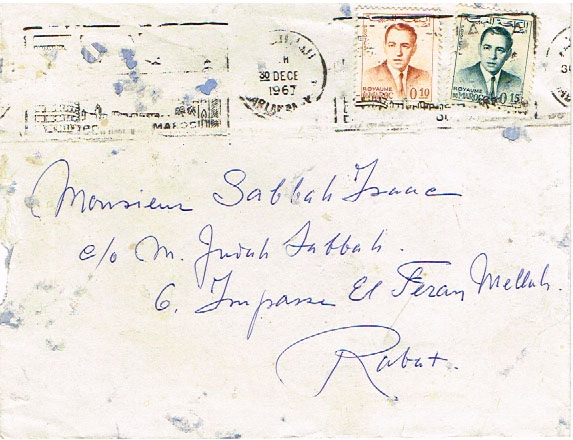 30 DECE
1967
MAROC
ROYAUME
DU MAROC
0.10
ROYAUME
DU MAROC
0.15
Monsieur Sabbah Isaac
c/o M. Judah Sabbah.
6. Impasse El Feran Mellah.
Rabat.